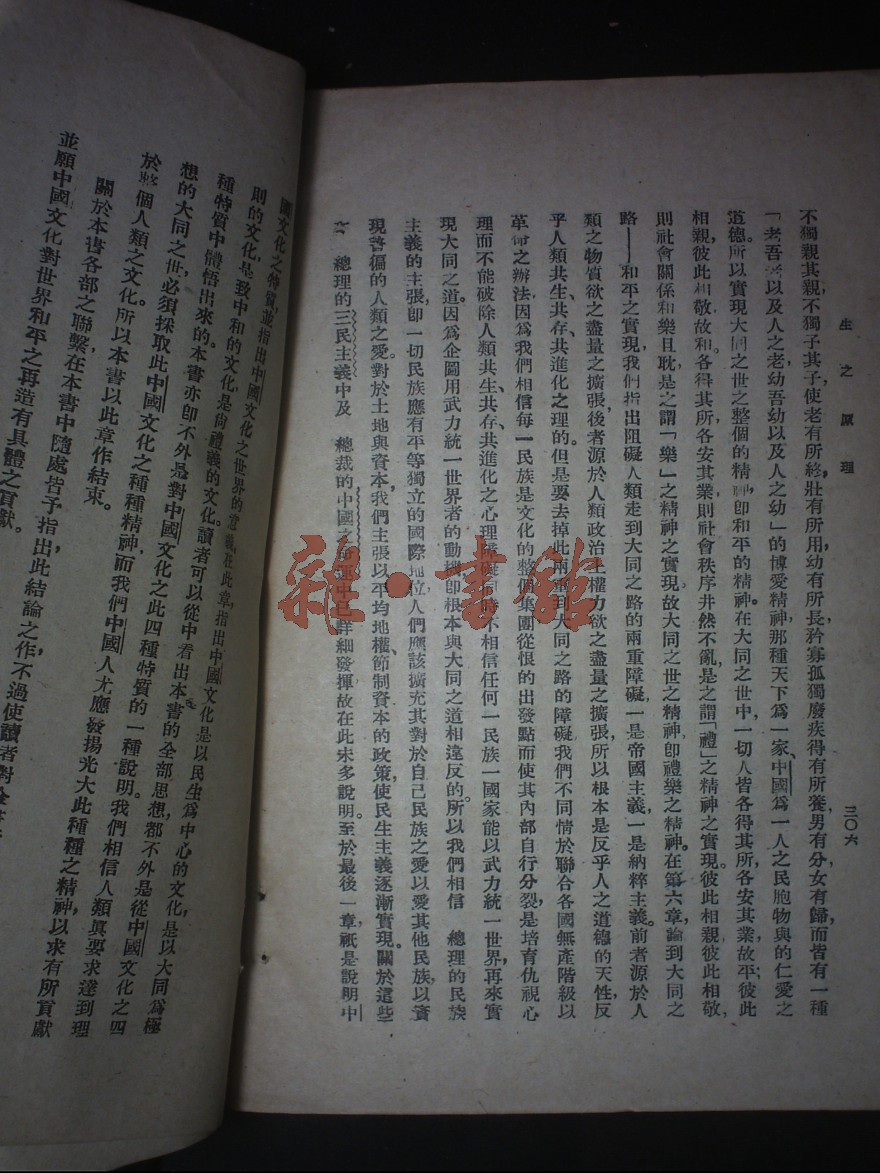 生之原理
三〇六
不獨親其親，不獨子其子，使老有所終，壯有所用，幼有所長，矜寡孤獨廢疾得有所養，男有分，女有歸，而皆有一種
「老吾老以及人之老，幼吾幼以及人之幼」的博愛精神，那種天下爲一家、中國爲一人之民胞物與的仁愛之
道德。所以實現大同之世之整個的精神，即和平的精神。在大同之世中，一切人皆各得其所，各安其業，故平；彼此
相親，彼此相敬，故和。各得其所，各安其業，則社會秩序井然不亂，是之謂「禮」之精神之實現。彼此相親，彼此相敬，
則社會關係和樂且耽，是之謂「樂」之精神之實現，故大同之世之精神，即禮樂之精神。在第六章，論到大同之
路——和平之實現，我們指出阻礙人類走到大同之路的兩重障礙，一是帝國主義，一是納粹主義。前者源於人
類之物質欲之盡量之擴張，後者源於人類政治主權力欲之盡量之擴張，所以根本是反乎人之道德的天性，反
乎人類共生、共存、共進化之理的。但是要去掉此兩重到大同之路的障礙，我們不同情於聯合各國無產階級以
革命之辦法，因爲我們相信每一民族是文化的整個集團，從恨的出發點而使其內部自行分裂，是培育仇視心
理，而不能破除人類共生、共存、共進化之心理障礙。同時不相信任何一民族一國家能以武力統一世界，再來實
現大同之道。因爲企圖用武力統一世界者的動機，即根本與大同之道相違反的。所以我們相信　總理的民族
主義的主張，即一切民族應有平等獨立的國際地位，人們應該擴充其對於自己民族之愛，以愛其他民族，以實
現普徧的人類之愛。對於土地與資本，我們主張以平均地權、節制資本的政策，使民生主義逐漸實現。關於這些
　總理的三民主義中及　總裁的中國之命運中已詳細發揮，故在此未多說明。至於最後一章，祇是說明中
國文化之特質，並指出中國文化之世界的意義。在此章，指出中國文化是以民生爲中心的文化，是以大同爲極
則的文化，是致中和的文化，是尙禮義的文化。讀者可以從中看出本書的全部思想，都不外是從中國文化之四
種特質中體悟出來的。本書亦即不外是對中國文化之此四種特質的一種說明。我們相信人類眞要求達到理
想的大同之世，必須採取此中國文化之種種精神，而我們中國人尤應發揚光大此種種之精神，以求有所貢獻
於整個人類之文化。所以本書以此章作結束。
關於本書各部之聯繫，在本書中隨處皆予指出，此結論之作，不過使讀者對全
並願中國文化對世界和平之再造有具體之貢獻。
雜·書館